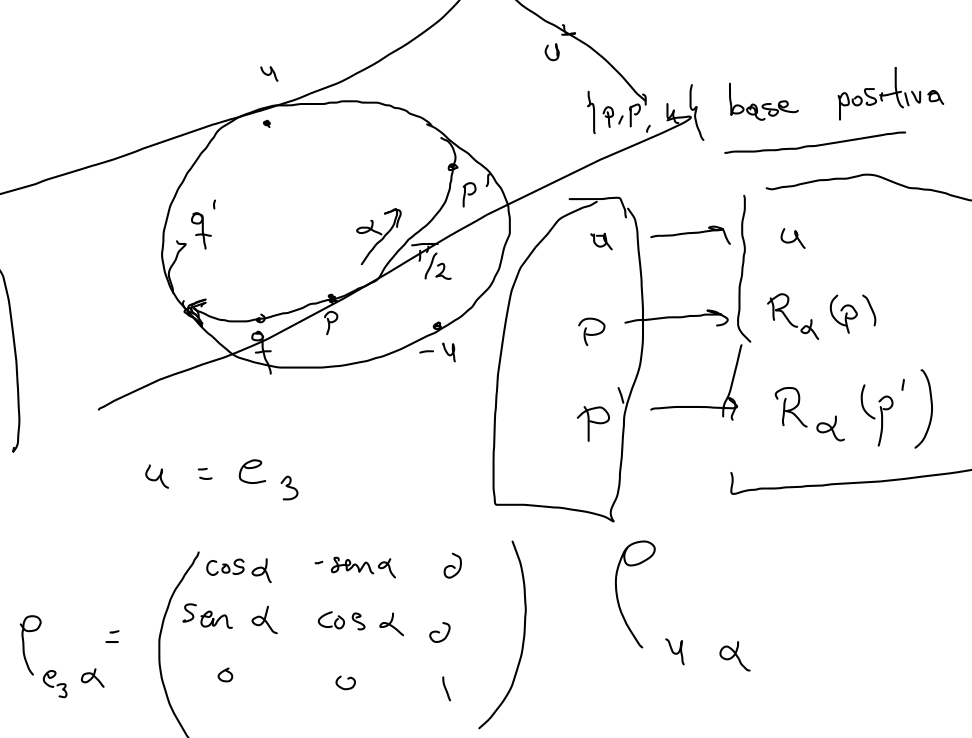 u
u
{p, p', u} base positiva
p'
q'
α
π/2
u → u
p
p → R_α(p)
q
-u
p' → R_α(p')
u = e_3
ρ_{e_3 α} = ( cos α  -sen α  0
sen α  cos α  0
0  0  1 )
ρ_{u α}